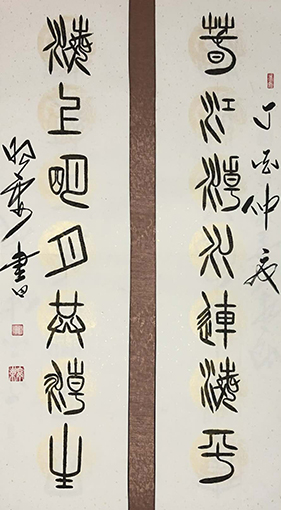 丁酉仲夏
春江潮水連海平
海上明月共潮生
書